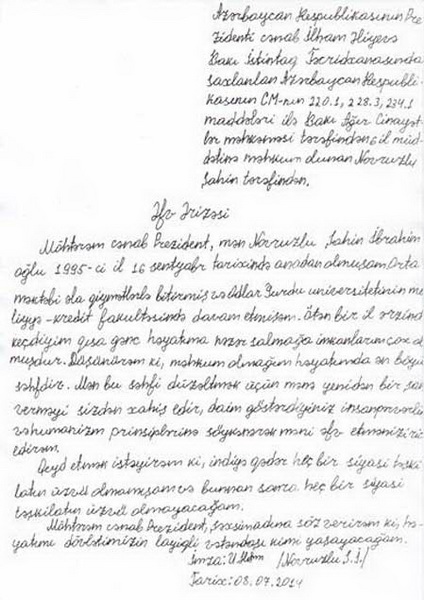 Azərbaycan Respublikasının Pre
zidenti cənab İlham Əliyevə
Bakı İstintaq Təcridxanasında
saxlanılan Azərbaycan Respubli-
kasının CM-nın 220.1, 228.3, 234.1
maddələri ilə Bakı Ağır Cinayət-
lər məhkəməsi tərəfindən 6 il müd-
dətinə məhkum olunan Novruzlu
Şahin tərəfindən.
Əfv Ərizəsi
Möhtərəm cənab Prezident, mən Novruzlu Şahin İbrahim
oğlu 1995-ci il 16 sentyabr tarixində anadan olmuşam. Orta
məktəbi əla qiymətlərlə bitirmiş və Odlar Yurdu universitetinin ma
liyyə-kredit fakultəsində davam etmişəm. Ötən bir il ərzində
keçdiyim qısa gənc həyatıma nəzər salmağa imkanlarım çox ol
muşdur. Düşünürəm ki, məhkum olmağım həyatımda ən böyü
səhfdir. Mən bu səhfi düzəltmək üçün mənə yenidən bir şan
verməyi sizdən xahiş edir, daim göstərdiyiniz insanpərvərlik
və humanizm prinsiplərinə söykənərək məni əfv etmənizi ric
edirəm.
Qeyd etmək istəyirəm ki, indiyə qədər heç bir siyasi təşki
latın üzvü olmamışam və bundan sonra heç bir siyasi
təşkilatın üzvü olmayacağam.
Möhtərəm cənab Prezident, şəxsinizdə söz verirəm ki, hə-
yatımı dövlətimizin layiqli vətəndaşı kimi yaşayacağam.
İmza: /Novruzlu Ş.İ./
Tarix: 08.07.2014